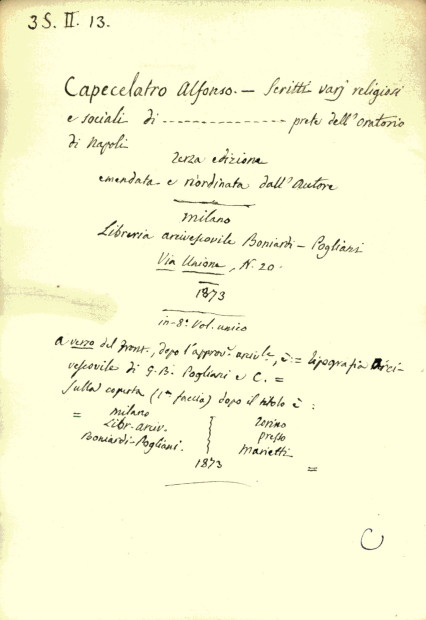 3 S. II. 13.
Capecelatro Alfonso. — Scritti varj religiosi
e sociali di -------------- prete dell'oratorio
di Napoli
Terza edizione
emendata e riordinata dall'Autore
Milano
Libreria arcivescovile Boniardi-Pogliani
Via Unione, N. 20.
1873
in-8° Vol. unico
a verzo del front., dopo l'approv. arciv.le, è: = Tipografia Arci-
vescovile di G. B. Pogliani e C. =
Sulla coperta (1a faccia) dopo il titolo è:
= Milano Torino
Libr. arciv. presso
Boniardi-Pogliani. Marietti
1873 =
C